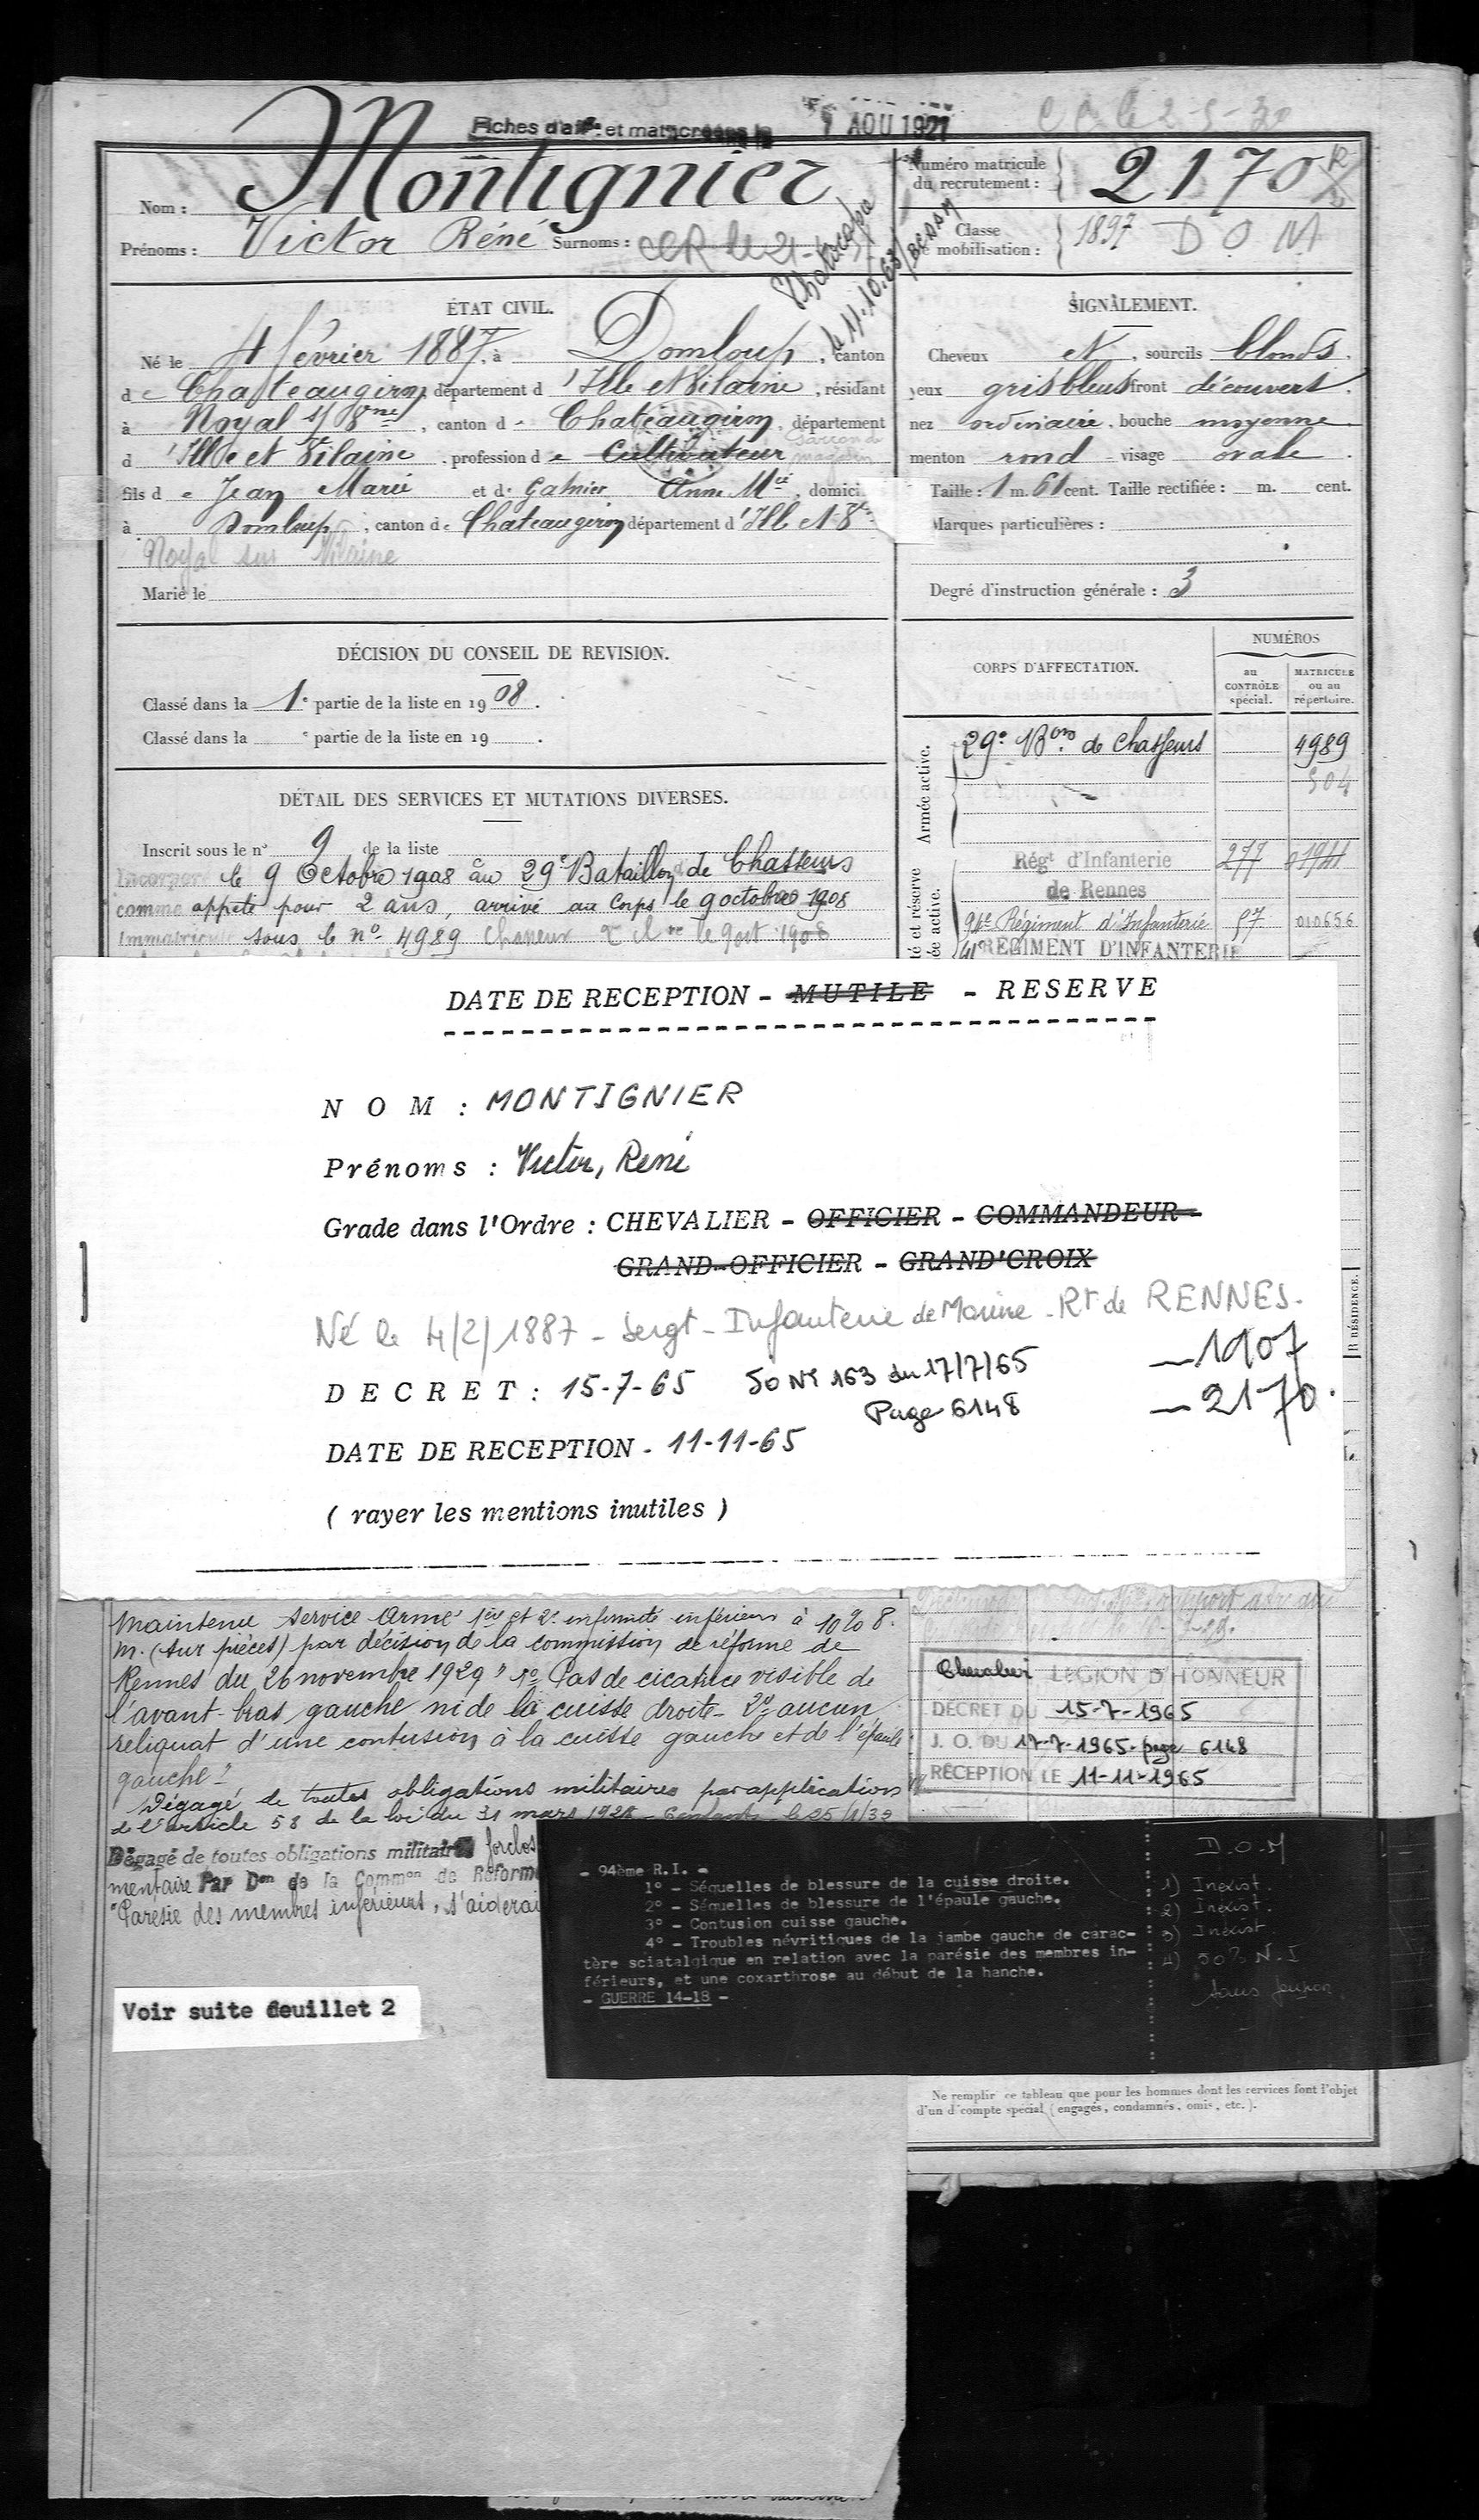 Fiches d'aff. et mat. créées le
AOU 1921
Nom : Montignier
Numéro matricule du recrutement : 2170
Prénoms : Victor Réné Surnoms :
Classe de mobilisation : 1897 D O M
Photocopie
le 11.10.63
ÉTAT CIVIL.
Né le 4 février 1887, à Domloup, canton
de Chateaugiron, département d'Ille et Vilaine, résidant
à Noyal s/ Vne, canton de Chateaugiron, département
d'Ille et Vilaine, profession de Cultivateur
fils de Jean Marie et de Anne Mie, domici
à Domloup, canton de Chateaugiron département d'Ille et Vne
Noyal sur Vilaine
Marié le
SIGNALEMENT.
Cheveux et, sourcils blonds.
yeux gris bleus front découvert.
nez ordinaire, bouche moyenne.
menton rond - visage ovale.
Taille : 1 m. 61 cent. Taille rectifiée : m. cent.
Marques particulières :
Degré d'instruction générale : 3
DÉCISION DU CONSEIL DE REVISION.
Classé dans la 1e partie de la liste en 1908.
Classé dans la e partie de la liste en 19 .
CORPS D'AFFECTATION.
NUMÉROS
au CONTRÔLE spécial.
MATRICULE ou au répertoire.
Armée active.
29e Bon de Chasseurs 4989
504
Régt d'Infanterie 277
de Rennes
94e Régiment d'Infanterie 57 010656
41e REGIMENT D'INFANTERIE
DÉTAIL DES SERVICES ET MUTATIONS DIVERSES.
Inscrit sous le n° 9 de la liste
Incorporé le 9 Octobre 1908 au 29e Bataillon de Chasseurs
comme appelé pour 2 ans, arrivé au Corps le 9 octobre 1908
Immatriculé sous le no 4989 Chasseur de 2e cl le 9 oct 1908
DATE DE RECEPTION - MUTILE - RESERVE
N O M : MONTIGNIER
Prénoms : Victor, René
Grade dans l'Ordre : CHEVALIER - OFFICIER - COMMANDEUR -
GRAND-OFFICIER - GRAND'CROIX
Né le 4/2/1887 - Sergt - Infanterie de Marine - Rt de RENNES.
- 1907
D E C R E T : 15-7-65 JO No 163 du 17/7/65
- 2170.
Page 6148
DATE DE RECEPTION - 11-11-65
( rayer les mentions inutiles )
R RÉSIDENCE.
Maintenu service armé 1ère et 2e infirmité inférieure à 10% 8.
M. (sur pièces) par décision de la commission de réforme de
Rennes du 26 novembre 1929 " 1o Pas de cicatrice visible de
l'avant-bras gauche ni de la cuisse droite - 2o aucun
reliquat d'une contusion à la cuisse gauche et de l'épaule
gauche "
Dégagé de toutes obligations militaires par application
de l'article 58 de la loi du 31 mars 1928 - 6 enfants - le 25/1/39
Dégagé de toutes obligations militaires
mentaire Par Don de la Common de Réforme
"Parésie des membres inférieurs, s'aiderai
Chevalier LEGION D'HONNEUR
DECRET DU 15-7-1965
J. O. DU 17-7-1965 - page 6148
RECEPTION LE 11-11-1965
- 94ème R.I. -
1° - Séquelles de blessure de la cuisse droite.
2° - Séquelles de blessure de l'épaule gauche.
3° - Contusion cuisse gauche.
4° - Troubles névritiques de la jambe gauche de carac-
tère sciatalgique en relation avec la parésie des membres in-
férieurs, et une coxarthrose au début de la hanche.
- GUERRE 14-18 -
D.O.M
1) Inexist.
2) Inexist.
3) Inexist
4) 50% N.I
Voir suite feuillet 2
Ne remplir ce tableau que pour les hommes dont les services font l'objet
d'un décompte spécial (engagés, condamnés, omis, etc.).